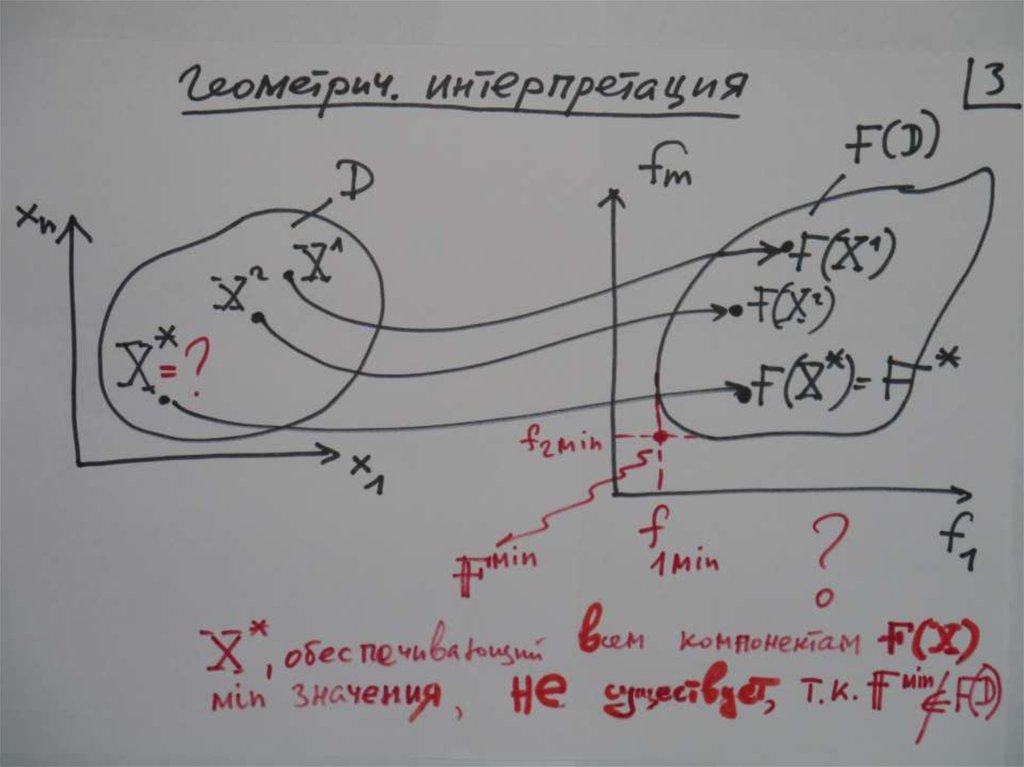 Геометрич. интерпретация
3
D
F(D)
xn
fm
X¹
F(X¹)
X²
F(X²)
X*=?
F(X*)= F*
f2min
x1
f1min
f1
Fmin
?
X*, обеспечивающий всем компонентам F(X)
min значения, не существует, т.к. Fmin∉F(D)